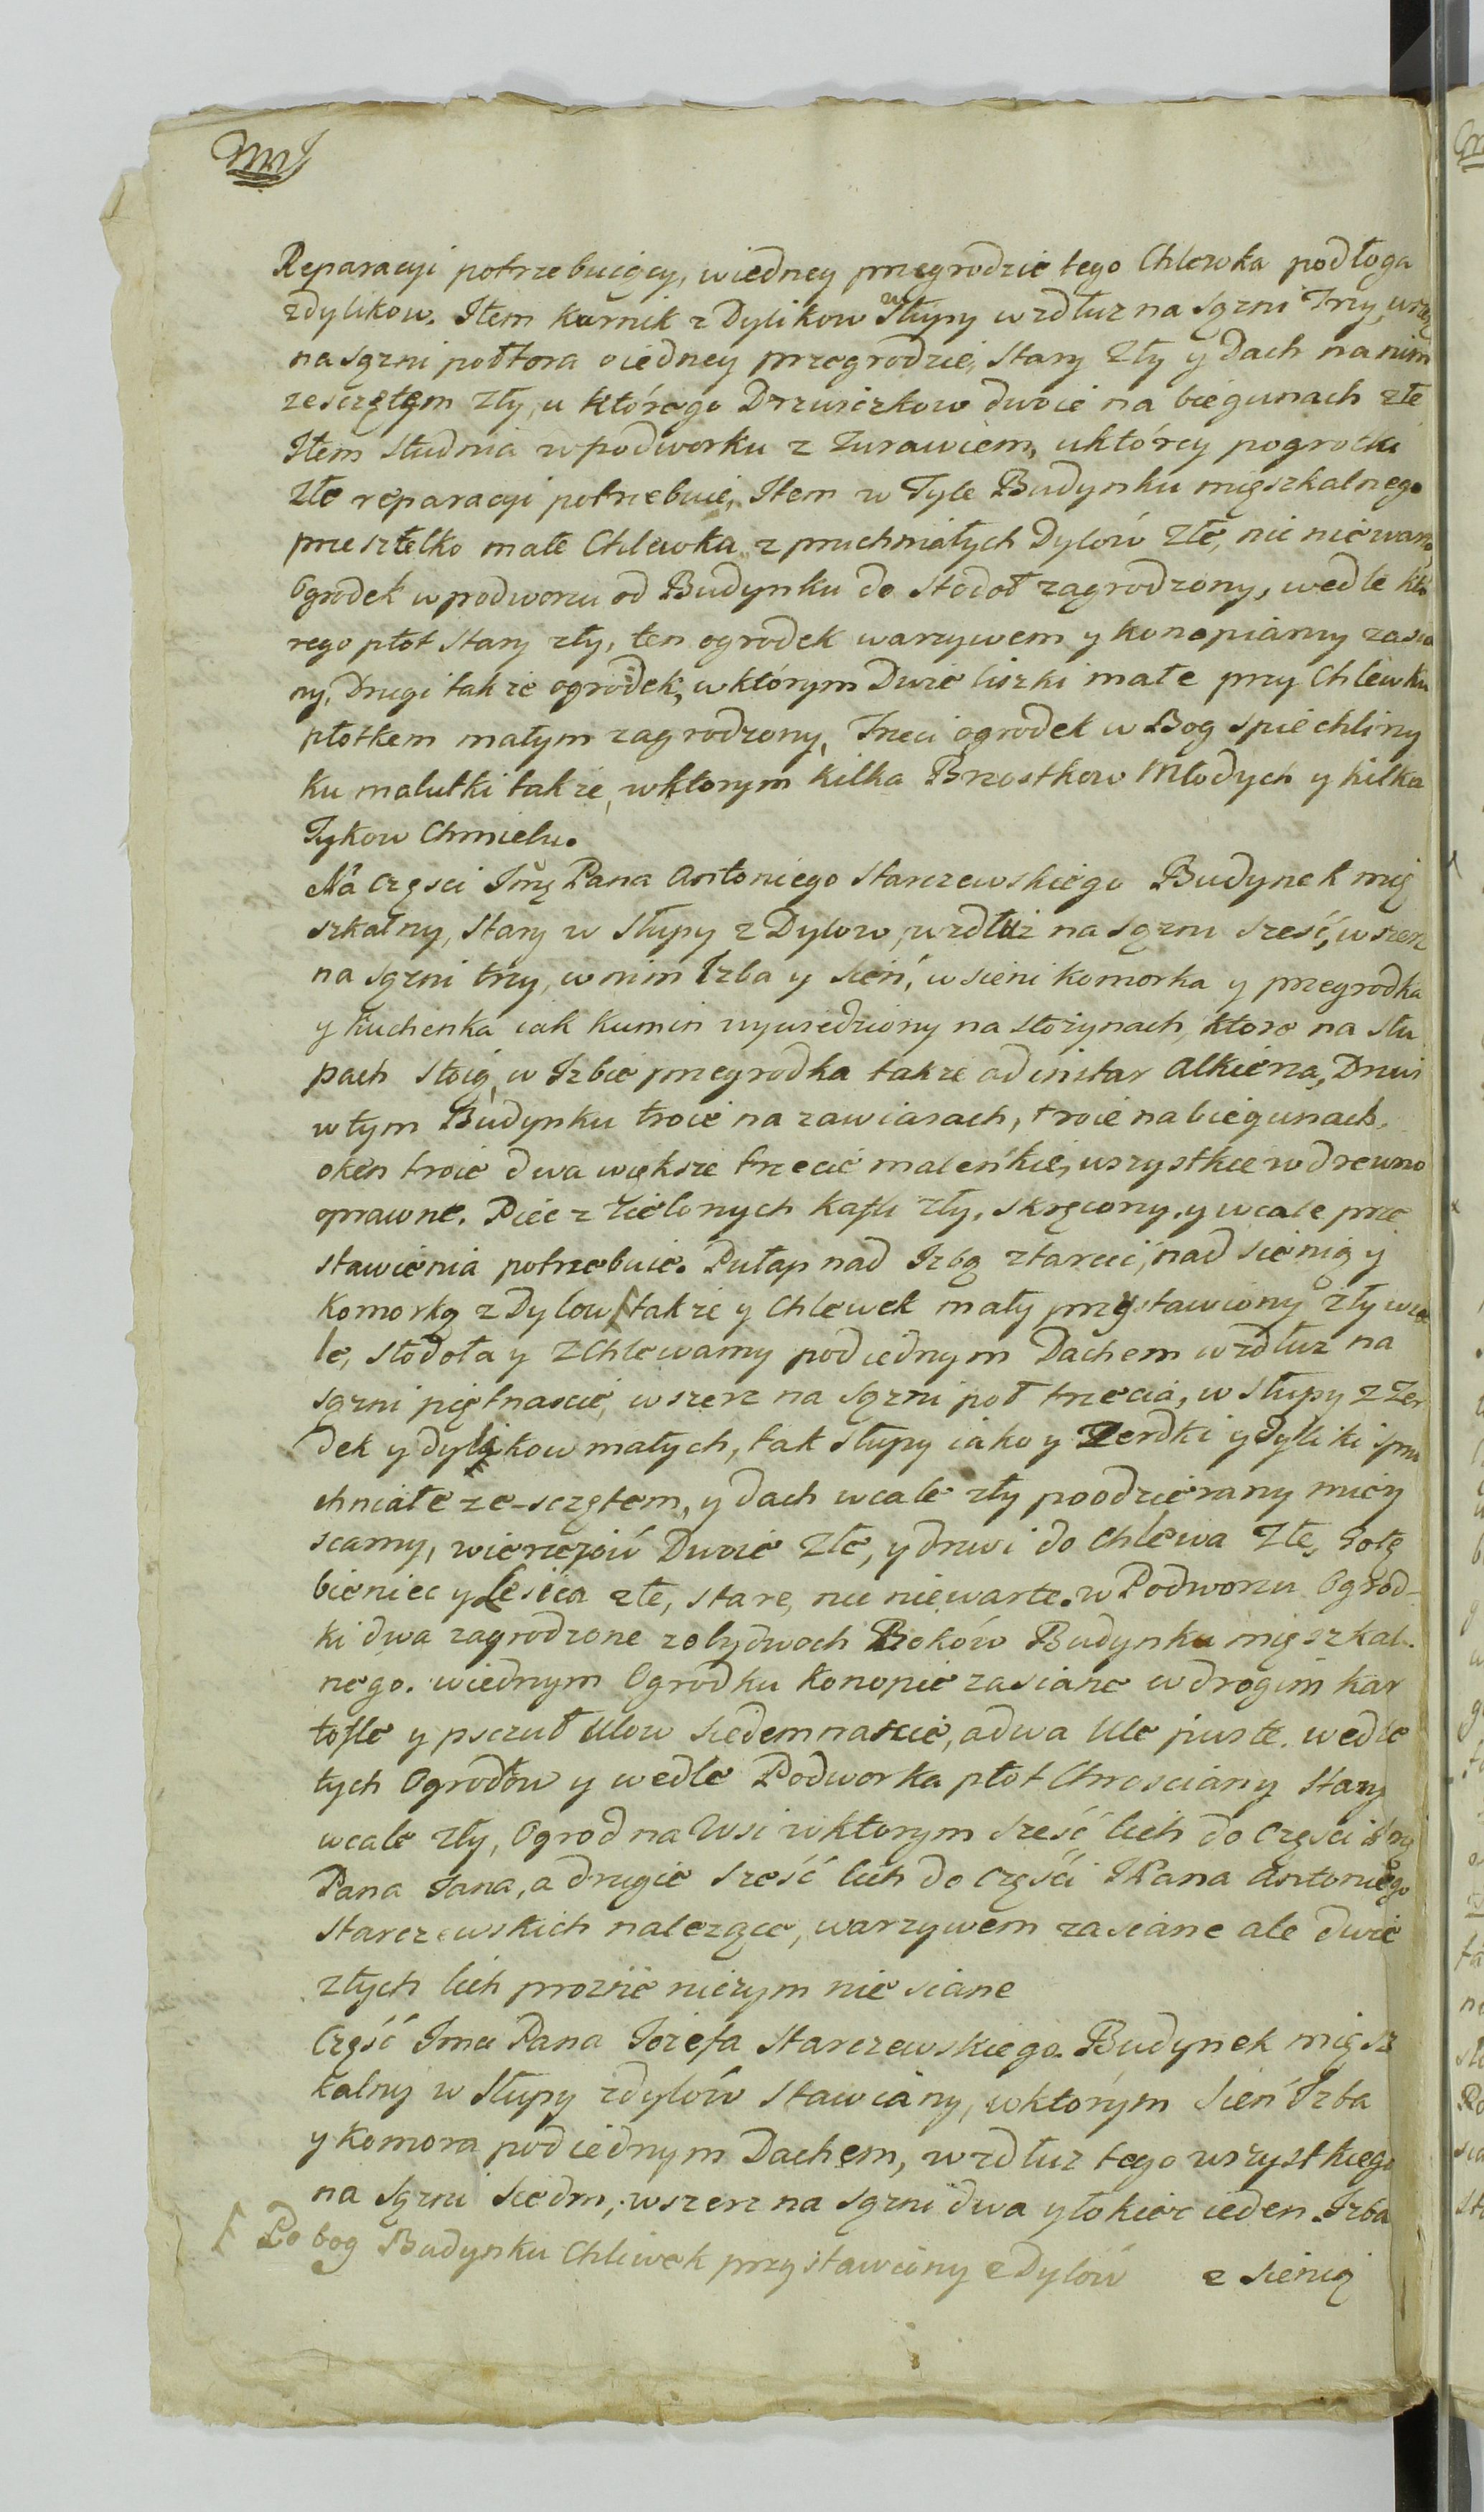 Reparacyi potrzebuiący, wiedney przegrodzie tego Chlewka podłoga
zdylikow. Item kurnik z Dylikow w Słupy wzdłuz na sązni Trzy, wszerz
na sązni połtora o iedney przegrodzie, stary zły y dach na nim
zesczętem zły, u którego Drzwiczkow dwoie na biegunach złe
Item studnia w podworku z Zurawiem, u którey pogrodki
złe reparacyi potrzebuie, Item w Tyle Budynku mięszkalnego
przesztelko małe Chlewka z pruchniałych Dylów złe, nic niewarte
Ogrodek w podworzu od Budynku do stodoł zagrodzony, wedle kto
rego płot stary zły, ten ogrodek warzywem y konopiamy zasia
ny, Drugi takze ogrodek, w którym Dwie liszki małe przy Chlewku
płotkem małym zagrodzony, Trzeci ogrodek w Bog spiechliny
ku malutki takze, wktorym kilka Brzostkow Młodych y kilka
Tykow Chmielu.
Na Częsci Jmę Pana Antoniego Starczewskiego Budynek mię
szkalny, stary w słupy z Dylow, wzdłuż na sązni sześć, wszerz
na sązni trzy, w nim Izba y sień, w sieni komorka y przegrodka
y kuchenka iak kumin wywiedziony na stożynach, ktore na słu
pach stoią, w Izbie przegrodka takze ad instar Alkierza, Drzwi
w tym Budynku troie na zawiasach, troie na biegunach,
oken troie dwa większe trzecie maleńkie, wszystkie w drewno
oprawne. Piec z zielonych kafli zły, skręcony, y wcale prze
stawienia potrzebuie. Pułap nad Izbą z tarcic, nad sienią y
komorką z Dylow ſ takze y Chlewek mały przystawiony zły wca
le, stodoła y z Chlewamy pod iednym Dachem wzdłuz na
sązni piętnascie, wszerz na sązni poł trzecia, w słupy z Zer
dek y dylikow małych, tak słupy iako y Zerdki y dyliki spru
chniałe ze-sczętem, y dach wcale zły poodzierany miey
scamy, wierzejów Dwoie złe, y drzwi do Chlewa złe, Gołę
bieniec y Lesica złe, stare, nic niewarte. w Podworzu Ogrod-
ki dwa zagrodzone z obydwoch Boków Budynku mięszkal-
nego. wiednym Ogrodku konopie zasiane w drogim kar
tofle y psczuł Ulow siedemnascie, a dwa Ule puste. wedle
tych Ogrodow y wedle Podworka płot Chrosciany stary
wcale zły, Ogrod na Wsi w ktorym sześć lich do Częsci Jmę
Pana Jana, a drugie sześć lich do Części JPana Antoniego
Starczewskich nalezące, warzywem zasiane ale dwie
z tych lich prozne niczym nie siane
Część Jmci Pana Jozefa Starczewskiego. Budynek mięsz
kalny w słupy z dylów stawiany, w którym Sień Izba
y komora pod iednym Dachem, wzdłuz tego wszystkiego
na sązni siedm, wszerz na sązni dwa y łokieć ieden. Izba
ſ Po bog Budynku Chliwek przystawiony z Dylów
z sienią